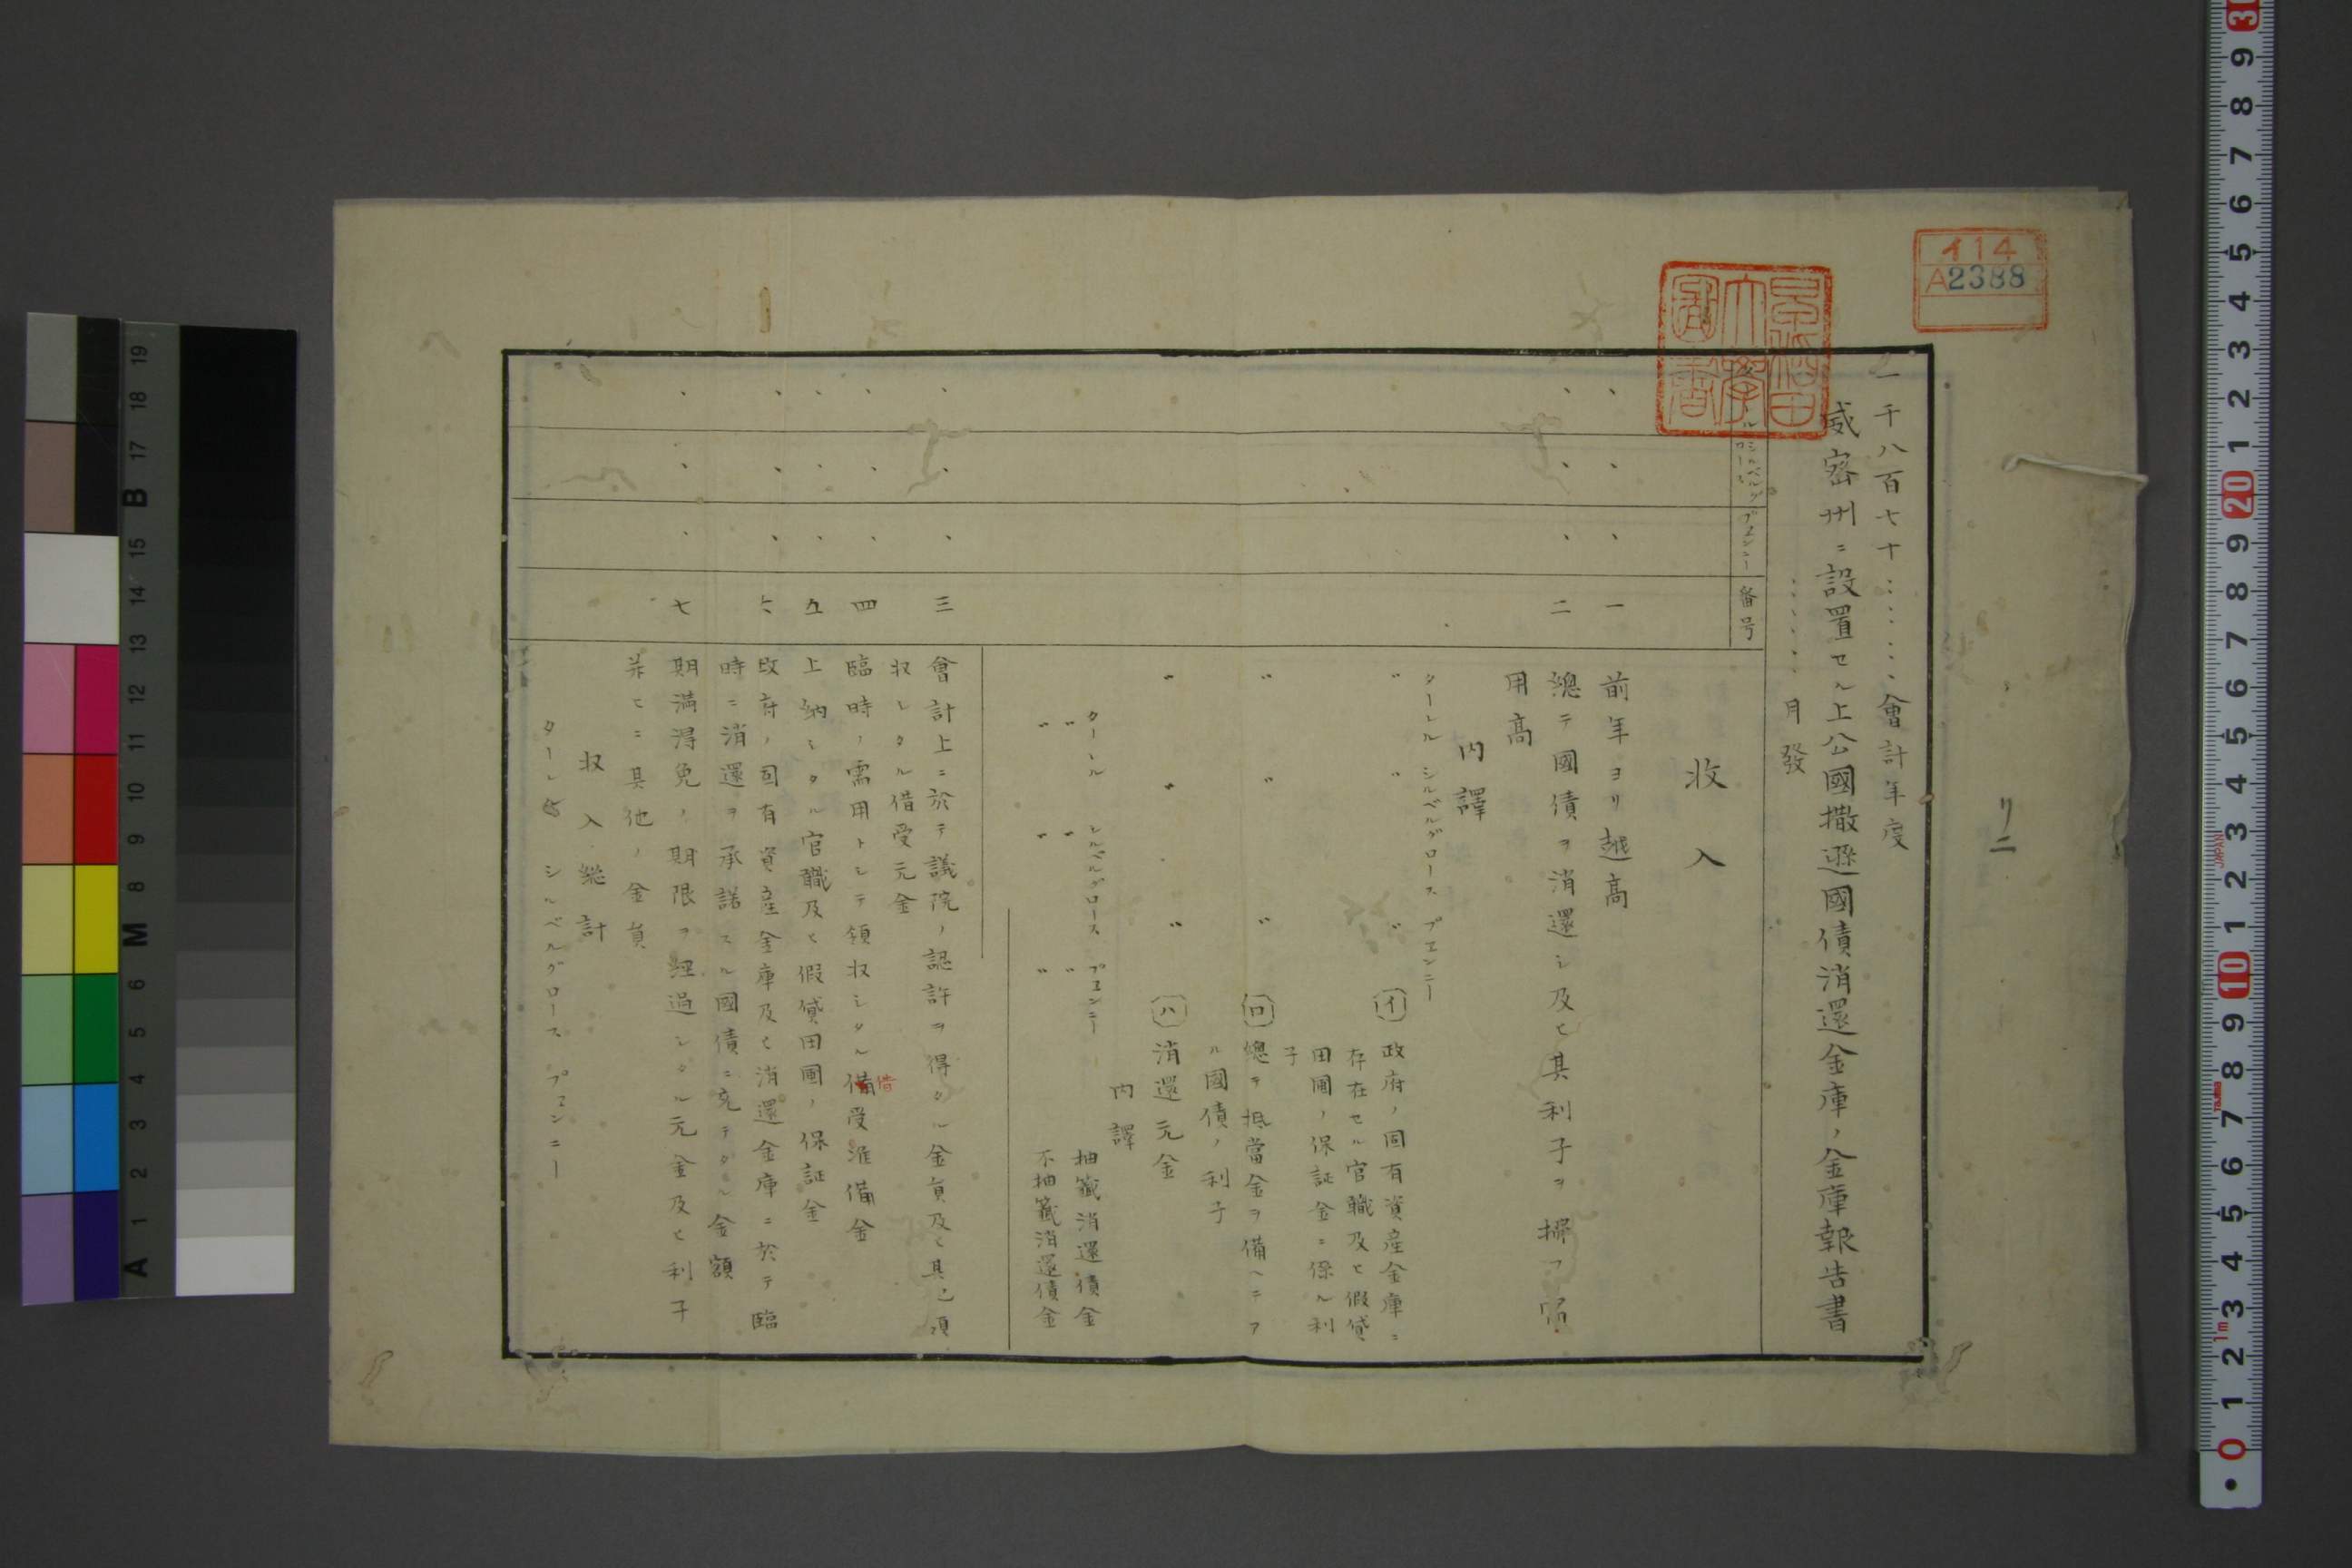 イ14
A2388
リニ
一千八百七十……會計年度
威密州ニ設置セル上公國撒遜國債消還金庫ノ金庫報告書
……月發
早稲田大學圖書
シルベルグロース
プエンニー
番号
收入
一 前年ヨリ越高
二 總テ國債ヲ消還シ及ヒ其利子ヲ拂フ
用高
内譯
ターレル シルベルグロース プエンニー
〃 〃 〃 (イ) 政府ノ固有資産金庫ニ
存在セル官職及ヒ假貸
田圃ノ保証金ニ係ル利
子
〃 〃 〃 (ロ) 總テ抵當金ヲ備ヘニア
ル國債ノ利子
〃 〃 〃 (ハ) 消還元金
内譯
ターレル シルベルグロース プエンニー
〃 〃 〃 抽籤消還債金
〃 〃 〃 不抽籤消還債金
三 會計上ニ於テ議院ノ認許ヲ得タル金員及ヒ其已ニ領
収シタル借受元金
四 臨時ノ需用トシテ領収シタル備受准備金
借
五 上納シタル官職及ヒ假貸田圃ノ保証金
六 政府ノ固有資産金庫及ヒ消還金庫ニ於テ臨
時ニ消還ヲ承諾スル國債ニ充テタル金額
七 期満得免ノ期限ヲ經過シタル元金及ヒ利子
并ヒニ其他ノ金員
収入總計
ターレル シルベルグロース プエンニー